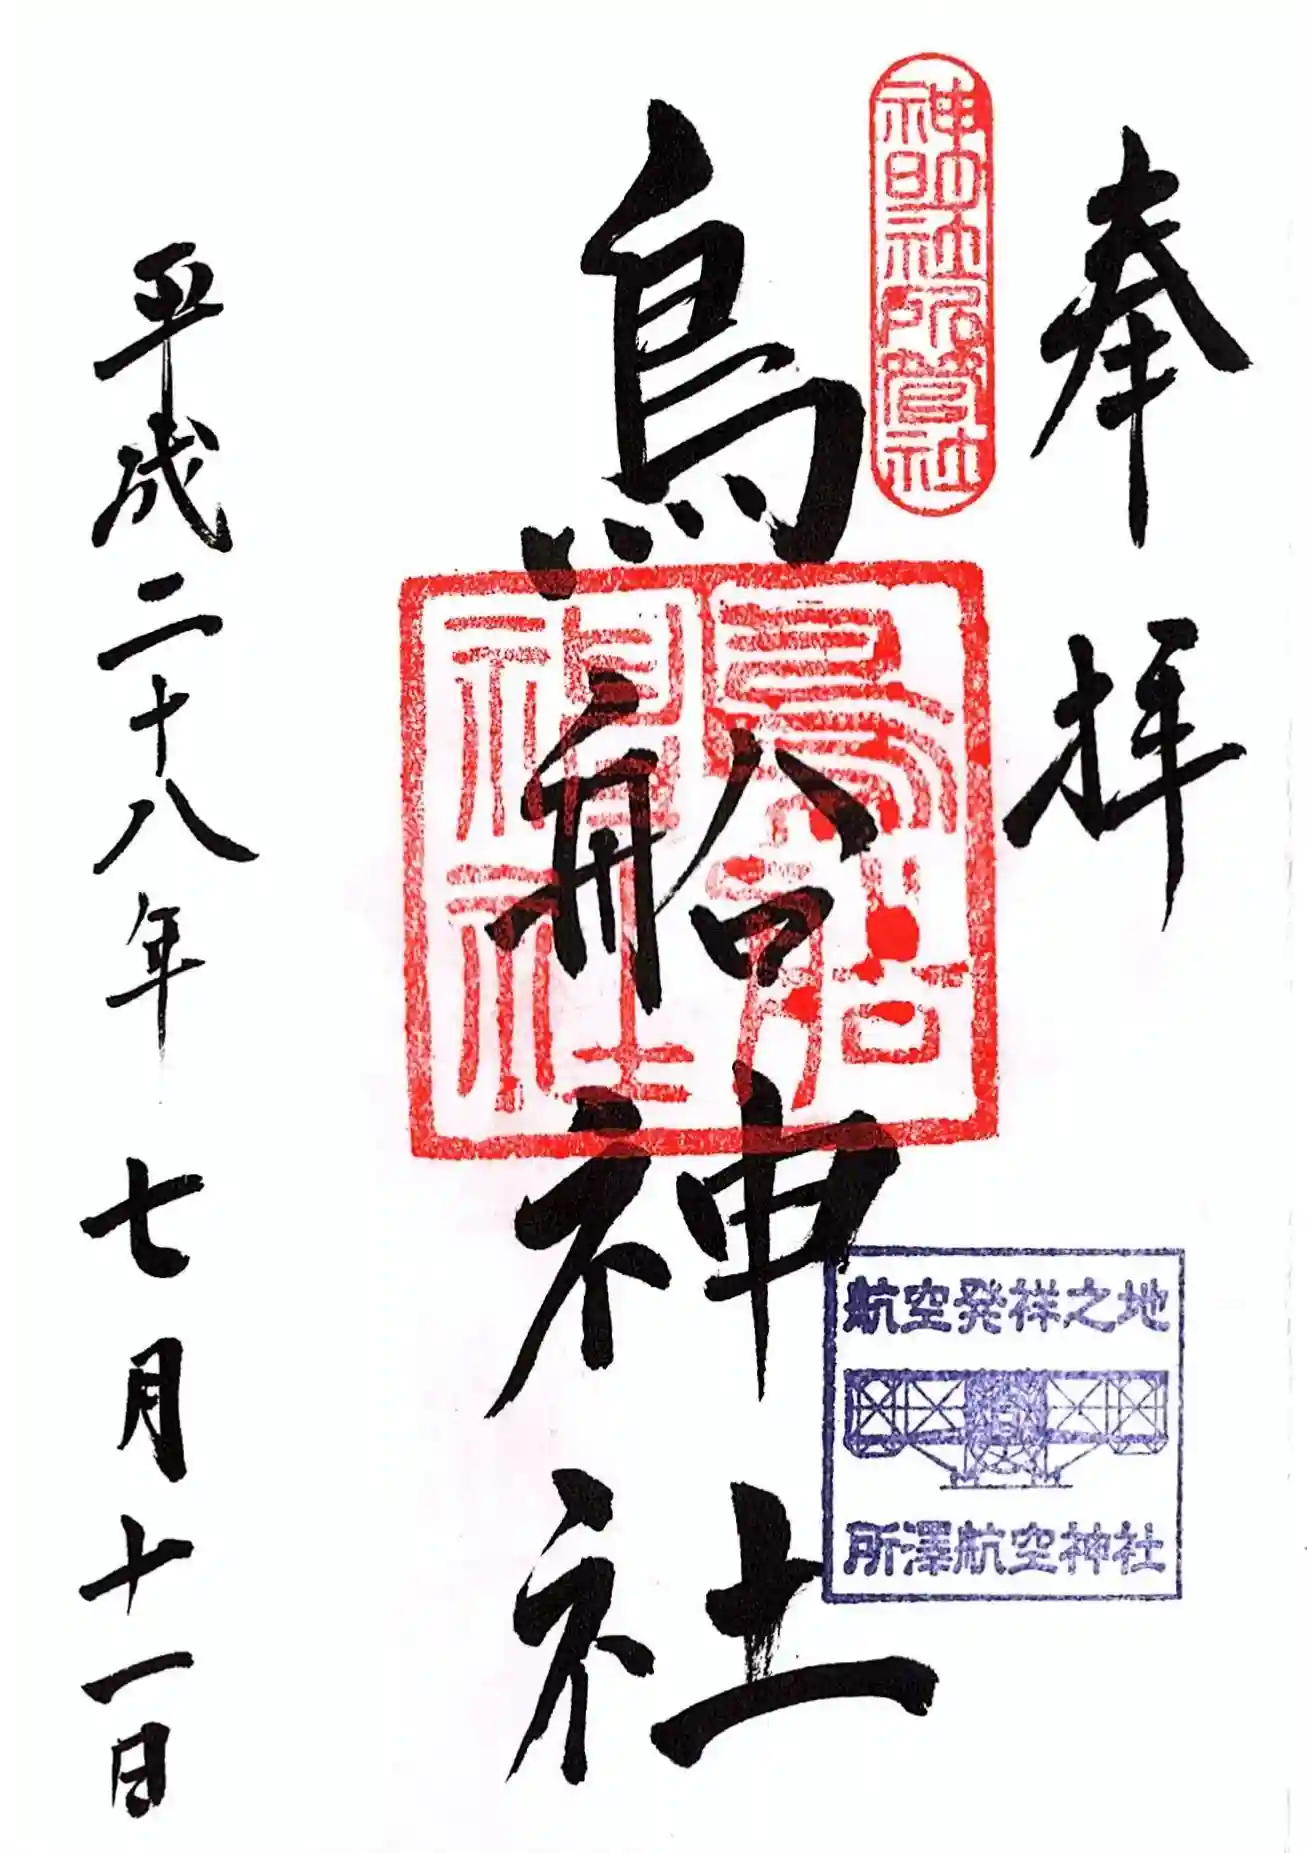 奉拝
神明社所管社
鳥船神社
鳥船
神社
航空発祥之地
所澤航空神社
平成二十八年 七月十一日